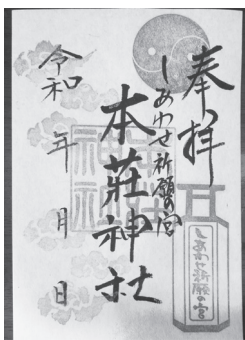 奉拝
しあわせ祈願の宮
本荘神社
令和 年 月 日
しあわせ祈願の宮